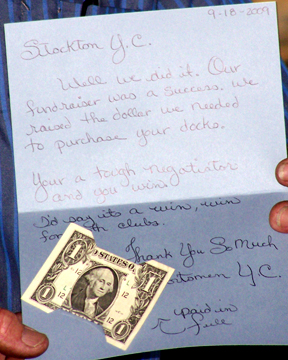 9-18-2009
Stockton Y.C.
Well we did it. Our
fundraiser was a success. we
raised the dollar we needed
to purchase your docks.
Your a tough negotiator
and you win
I'd say its a win, win
for clubs.
Thank You So Much
Y.C.
paid in
full
D STATES O
1
1